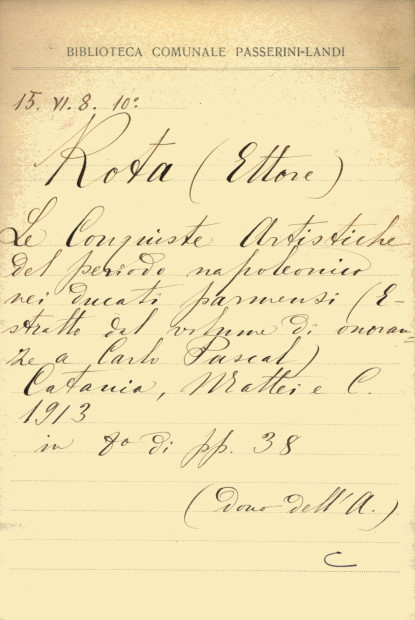 BIBLIOTECA COMUNALE PASSERINI-LANDI
15. VI. 8. 10º
Rota (Ettore)
Le Conquiste Artistiche
del periodo napoleonico
nei ducati parmensi (E-
stratto dal volume di onoran-
ze a Carlo Pascal)
Catania, Mattei e C.
1913
in 8º di pp. 38
(dono dell'A.)
C